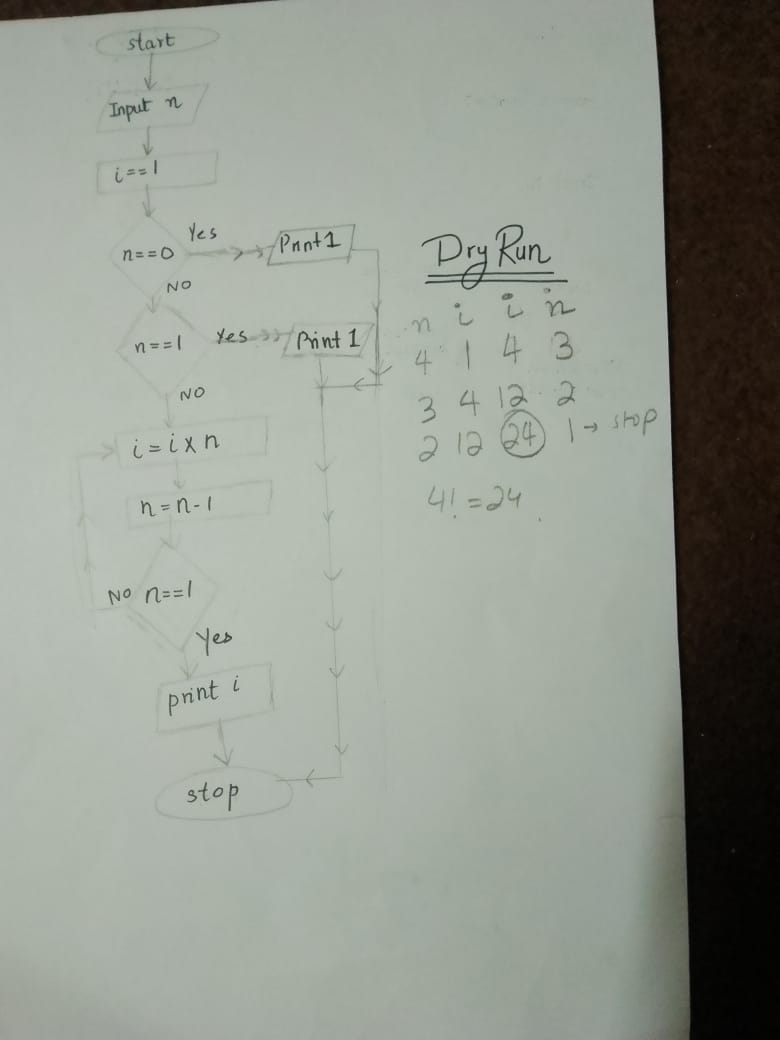 start
Input n
i==1
n==0 Yes Print 1
NO
n==1 Yes Print 1
NO
i=i×n
n=n-1
NO n==1
Yes
print i
stop
Dry Run
n i i n
4 1 4 3
3 4 12 2
2 12 24 1→ stop
4! = 24